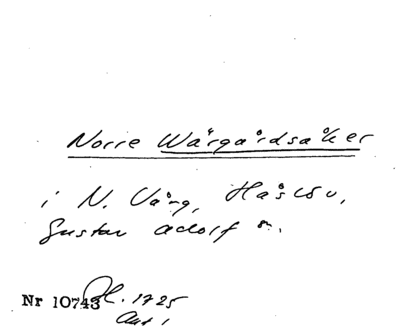 Norre Wårgårdsåker
i N. Vång, Håslöv,
Gustav Adolf sn.
Nr 10743 Pl. 1725
Ant 1